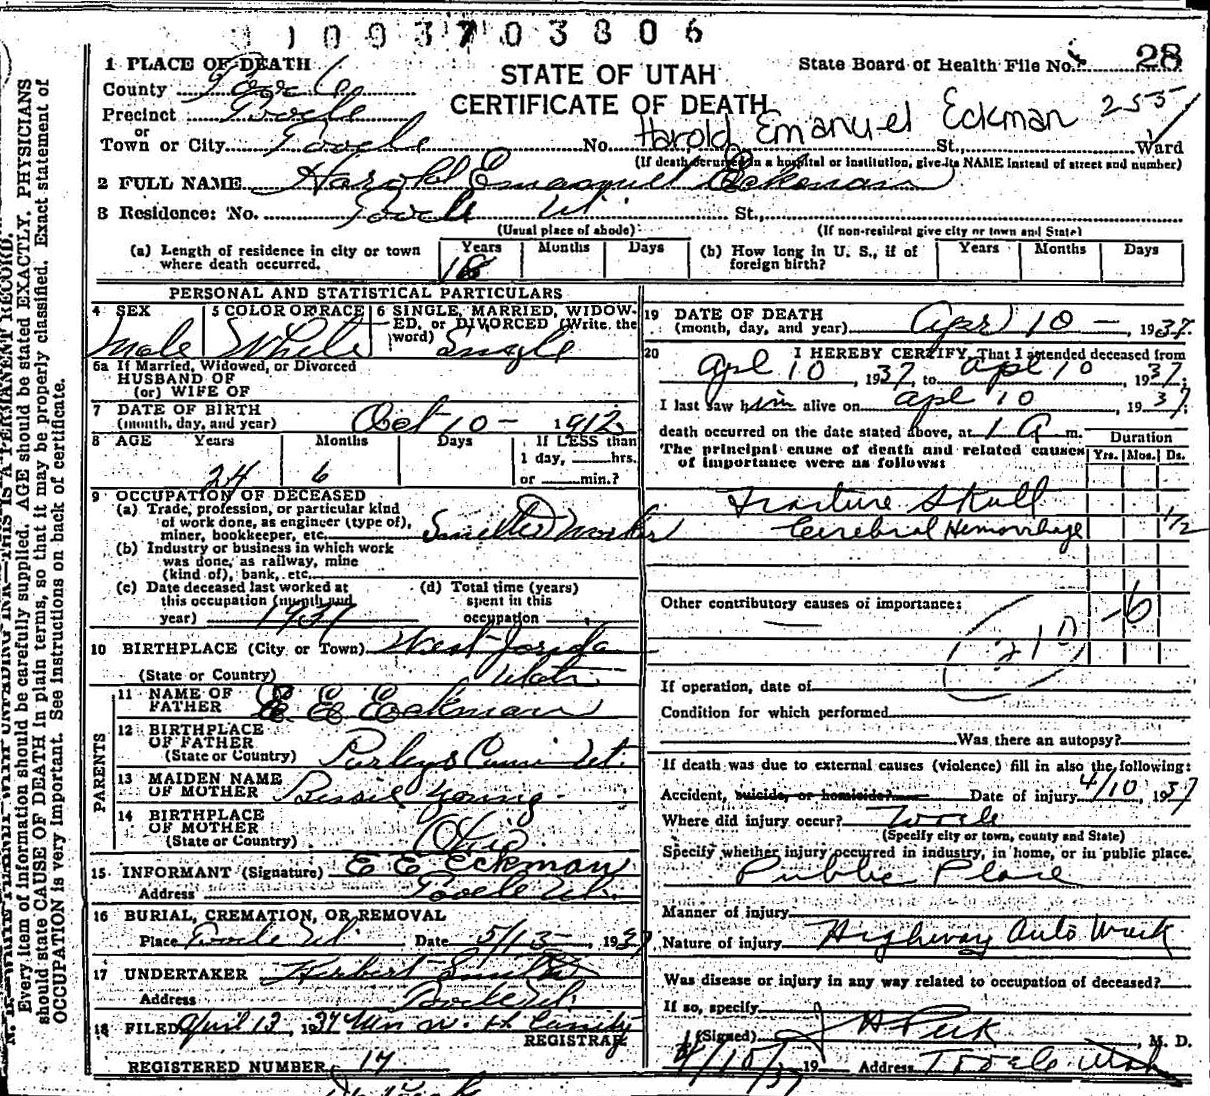 1 0 9 3 7 0 3 8 0 6
28
1 PLACE OF DEATH
STATE OF UTAH
State Board of Health File No.
County Tooele
CERTIFICATE OF DEATH
255
Precinct Tooele
or
Town or City Tooele No. Harold Emanuel Eckman St., Ward
(If death occurred in a hospital or institution, give its NAME instead of street and number)
2 FULL NAME Harold Emanuel Eckman
3 Residence: No. Tooele Ut. St.,
(Usual place of abode) (If non-resident give city or town and State)
(a) Length of residence in city or town where death occurred. Years 18 Months Days (b) How long in U. S., if of foreign birth? Years Months Days
PERSONAL AND STATISTICAL PARTICULARS
4 SEX Male
5 COLOR OR RACE White
6 SINGLE, MARRIED, WIDOWED, or DIVORCED (Write the word) Single
6a If Married, Widowed, or Divorced
HUSBAND OF
(or) WIFE OF
7 DATE OF BIRTH
(month, day, and year) Oct 10 - 1912
8 AGE Years 24 Months 6 Days If LESS than 1 day, hrs. or min.?
9 OCCUPATION OF DECEASED
(a) Trade, profession, or particular kind
of work done, as engineer (type of),
miner, bookkeeper, etc. Smelter Worker
(b) Industry or business in which work
was done, as railway, mine
(kind of), bank, etc.
(c) Date deceased last worked at
this occupation (month and
year) 1937
(d) Total time (years)
spent in this
occupation
10 BIRTHPLACE (City or Town) West Jordan
(State or Country) Utah
PARENTS
11 NAME OF
FATHER E E Eckman
12 BIRTHPLACE
OF FATHER
(State or Country) Parleys Ut.
13 MAIDEN NAME
OF MOTHER Bessie Young
14 BIRTHPLACE
OF MOTHER
(State or Country) Ohio
15 INFORMANT (Signature) E E Eckman
Address Tooele Ut.
16 BURIAL, CREMATION, OR REMOVAL
Place Tooele Ut Date 5/13 - , 1937
17 UNDERTAKER Herbert Smith
Address Tooele Ut.
18 FILED April 13, 1937 Mrs W. H. Cassity
REGISTRAR
REGISTERED NUMBER 17
19 DATE OF DEATH
(month, day, and year) Apr 10 - , 1937
20 I HEREBY CERTIFY, That I attended deceased from
Apl 10, 1937, to Apl 10, 1937;
I last saw him alive on Apl 10, 1937;
death occurred on the date stated above, at 1 A m.
Duration
The principal cause of death and related causes
of importance were as follows: Yrs. Mos. Ds.
Fracture Skull
Cerebral Hemorrhage 1/2
Other contributory causes of importance:
210 -6
If operation, date of
Condition for which performed
Was there an autopsy?
If death was due to external causes (violence) fill in also the following:
Accident, suicide, or homicide? Date of injury 4/10, 1937
Where did injury occur? Tooele
(Specify city or town, county and State)
Specify whether injury occurred in industry, in home, or in public place.
Public Place
Manner of injury
Nature of injury Highway Auto Wreck
Was disease or injury in any way related to occupation of deceased?
If so, specify
(Signed) J H Peck, M. D.
4/10/37 19 Address Tooele Utah
Every item of information should be carefully supplied. AGE should be stated EXACTLY. PHYSICIANS
should state CAUSE OF DEATH in plain terms, so that it may be properly classified. Exact statement of
OCCUPATION is very important. See instructions on back of certificate.